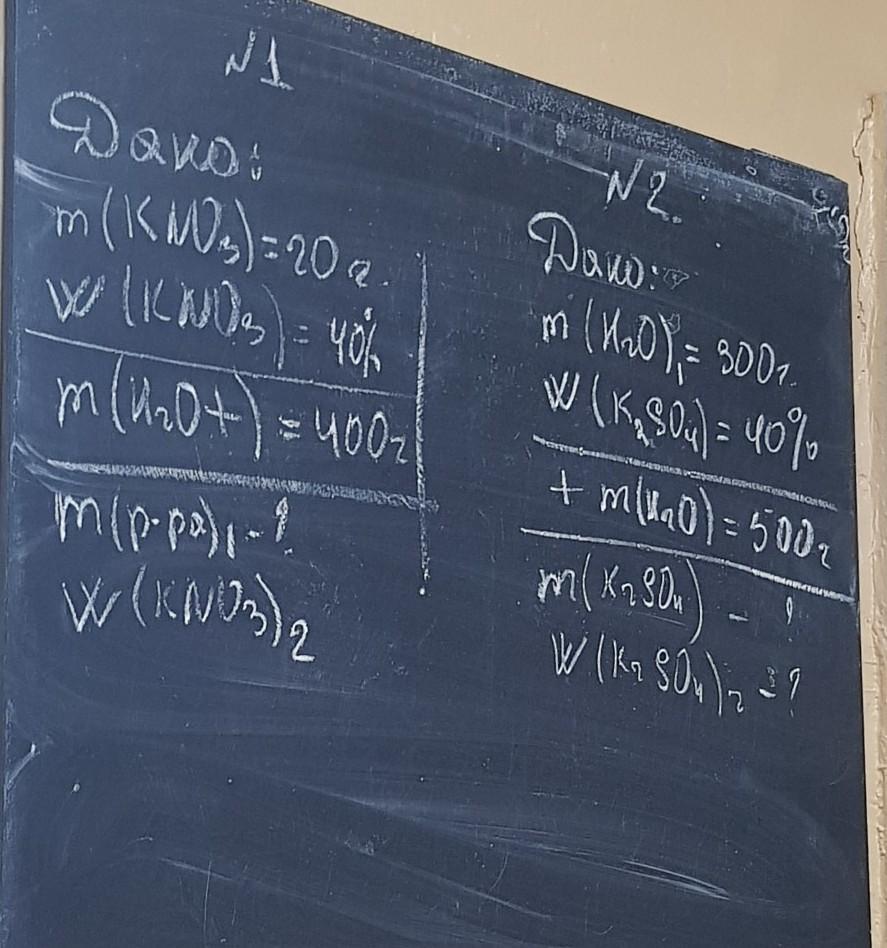 N1
Дано:
m(KNO3)=20г.
W(KNO3)=40%
m(H2O+)=400г
m(р-ра)1-?
W(KNO3)2
N2.
Дано:
m(H2O)1=300г.
W(K2SO4)=40%
+ m(H2O)=500г
m(K2SO4) - ?
W(K2SO4)2 =?